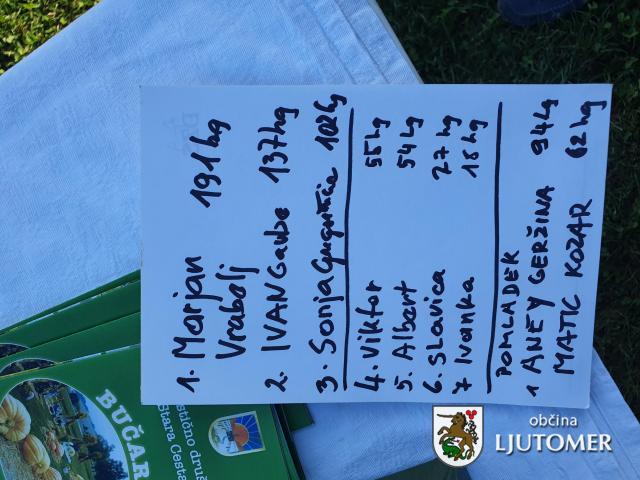 1. Marjan 191 kg
Vrabelj
2. IVAN Gaube 137 kg
3. Sonja 102 kg
4. Viktor 55 kg
5. Albert 54 kg
6. Slavica 27 kg
7 Ivanka 18 kg
POMLADEK
1 ANEY GERŽINA 94 kg
MATIC KOZAR 62 kg
BUČAR
Stara Cesta
občina
LJUTOMER